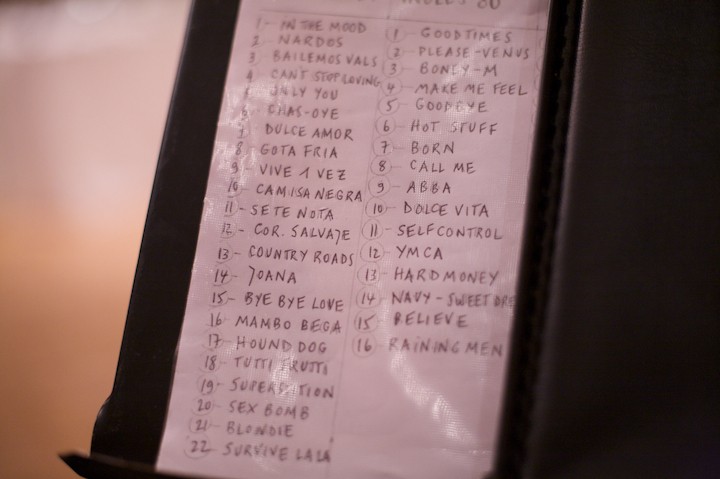 80
1- IN THE MOOD
2 NARDOS
3 BAILEMOS VALS
4 CANT STOP LOVING
ONLY YOU
CHAS-OYE
7 DULCE AMOR
8 GOTA FRIA
9- VIVE 1 VEZ
10- CAMISA NEGRA
11- SE TE NOTA
12- COR. SALVAJE
13- COUNTRY ROADS
14- JOANA
15- BYE BYE LOVE
16- MAMBO BEGA
17- HOUND DOG
18- TUTTI FRUTTI
19- SUPERSTITION
20- SEX BOMB
21- BLONDIE
22- SURVIVE LALA
1- GOODTIMES
2- PLEASE-VENUS
3- BONEY-M
4- MAKE ME FEEL
5- GOODBYE
6- HOT STUFF
7- BORN
8- CALL ME
9- ABBA
10- DOLCE VITA
11- SELFCONTROL
12- YMCA
13- HARD MONEY
14- NAVY-SWEET DRE
15- BELIEVE
16- RAINING MEN